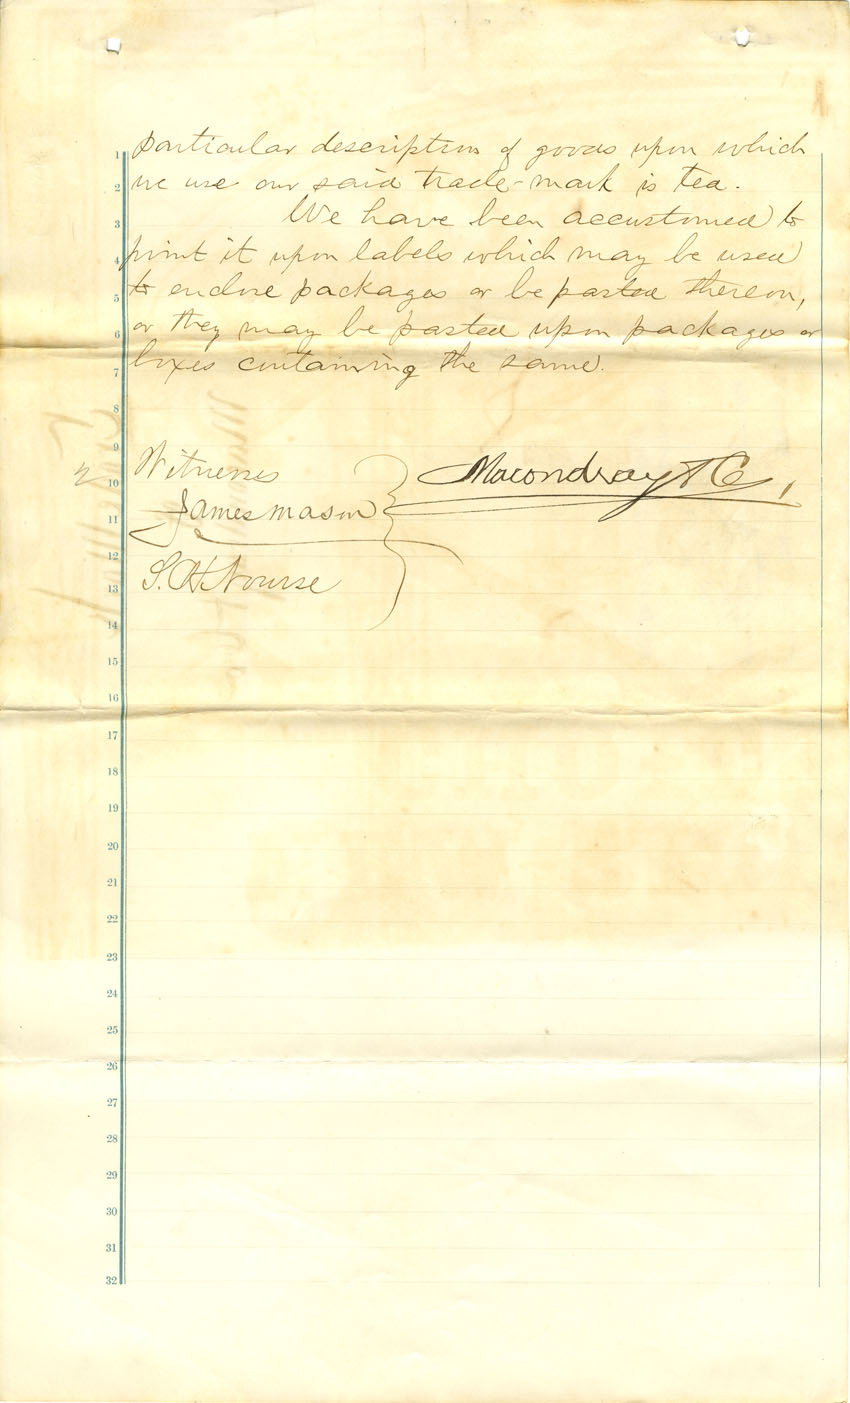 1 particular description of goods upon which
2 we use our said trade-mark is tea.
3 We have been accustomed to
4 print it upon labels which may be used
5 to enclose packages or be pasted thereon,
6 or they may be pasted upon packages or
7 boxes containing the same.
8
9
10 Witnesses Macondray & Co,
11 James Mason
12
13 S. H. Nourse
14
15
16
17
18
19
20
21
22
23
24
25
26
27
28
29
30
31
32